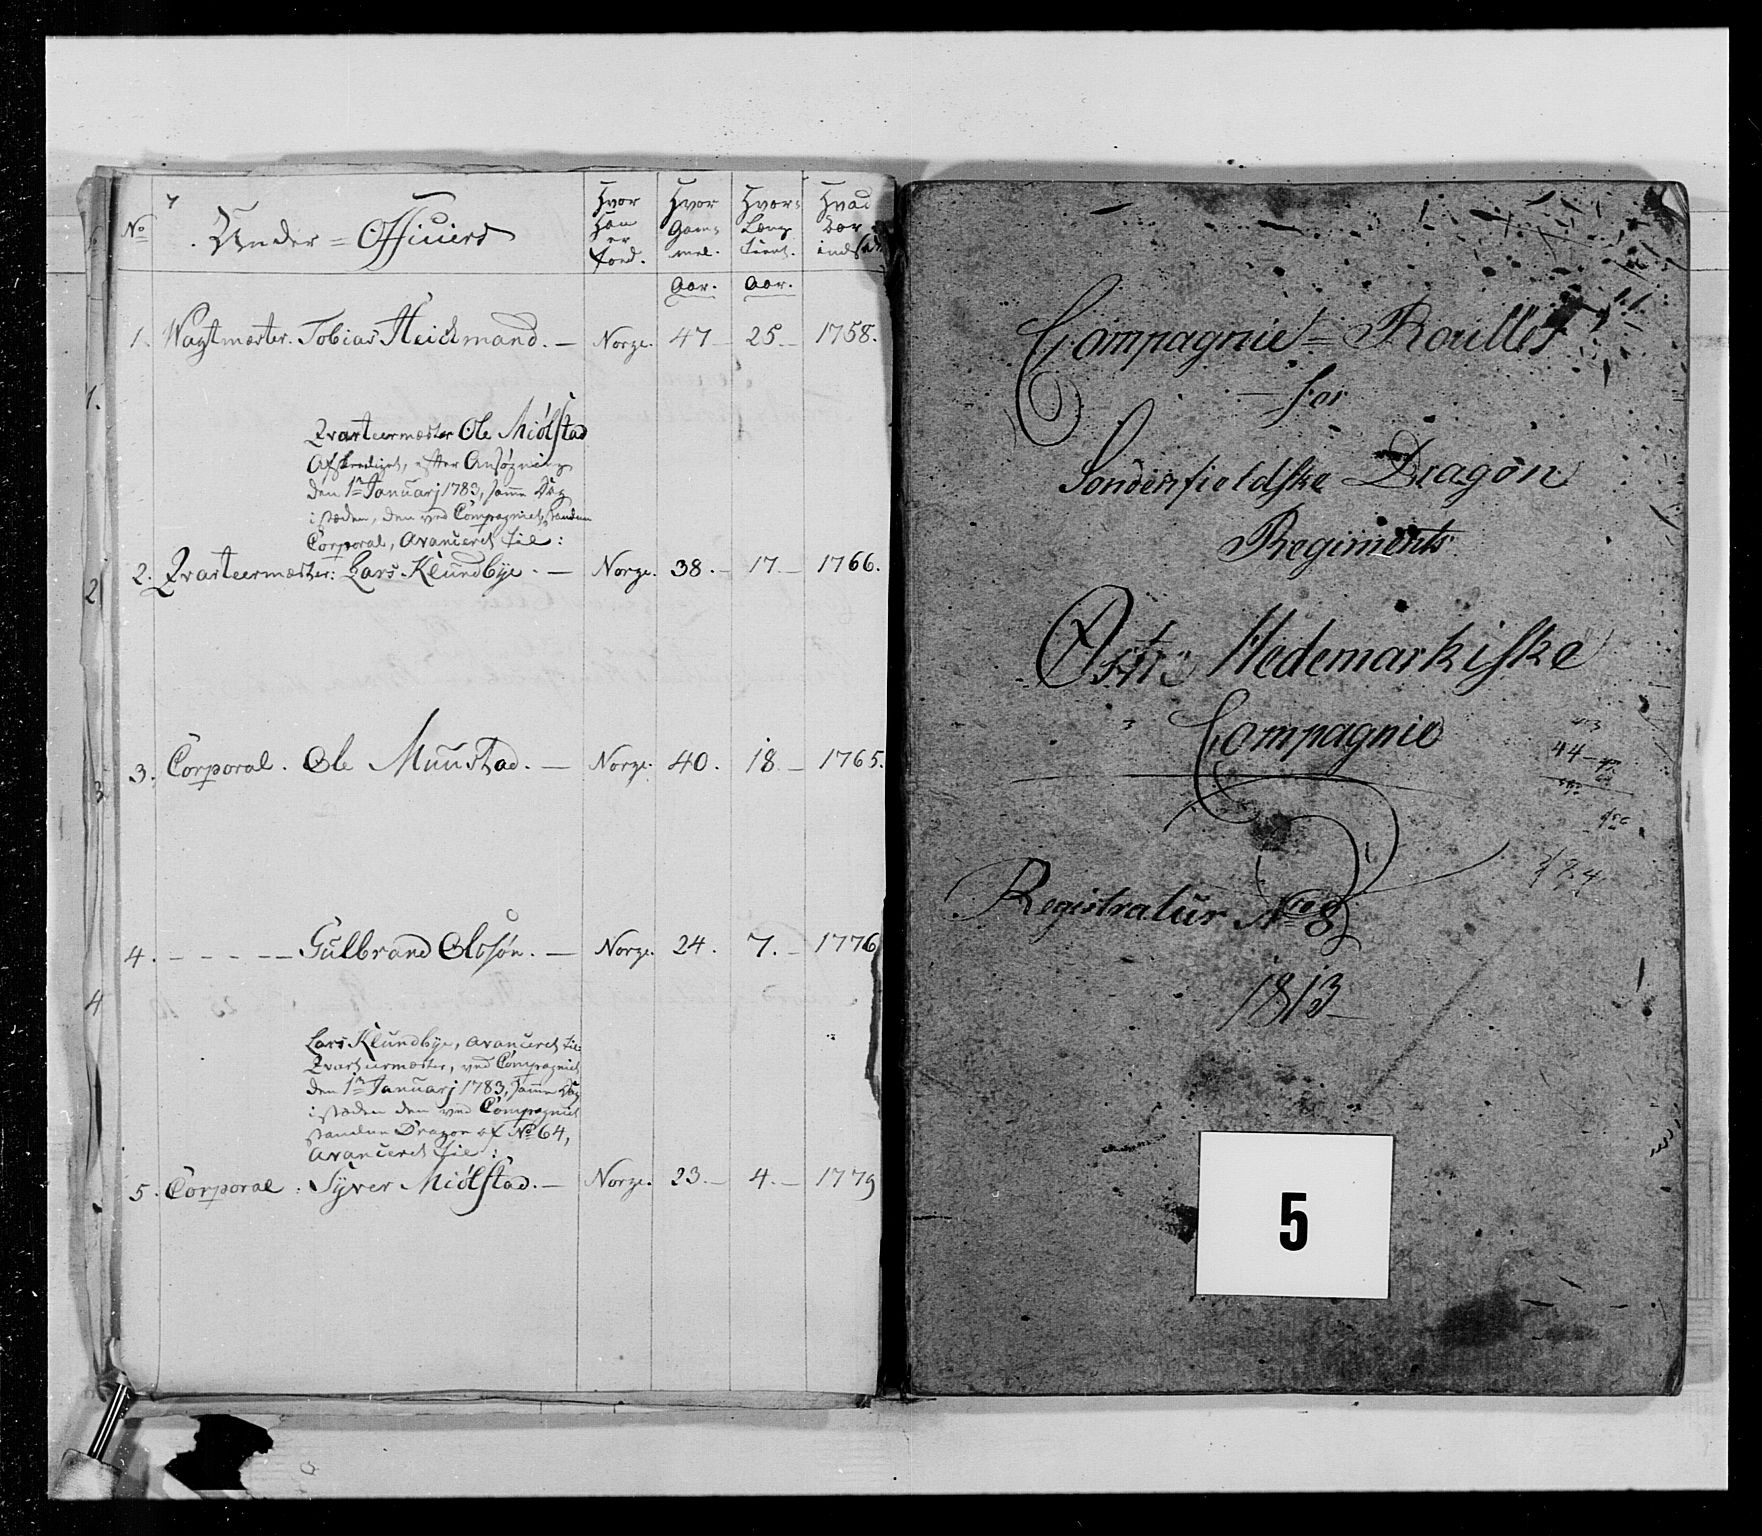 No
Under = Officiers
Hvor
Han
er
Fød.
Hvor
Gam-
mel.
Aar.
Hvor-
Læng
tient.
Aar.
Hvad
Aar
1. Wagtmæster. Tobias Heidmand. — Norge. 47 — 25 — 1758.
Qvarteermæster Ole Miølstad
Afskeediget, efter Ansøgning
den 1n Januarj 1783, samme Dag
istæden, den ved Compagniet standne
Corporal, Avanceret til:
2. Qvarteermæster: Lars Klundbye. — Norge. 38. — 17. — 1766.
3. Corporal. Ole Muustad. — Norge. 40. 18. — 1765.
4. — — — — — Gulbrand Olssøn. — Norge. 24. 7. — 1776
Lars Klundbye, avanceret til
Qvarteermæster, ved Compagniet
den 1n Januarj 1783, samme Dag
istæden den ved Compagniet
standne Dragon af No 64,
avanceret til:
5. Corporal: Syver Miølstad. — Norge. 23. — 4. — 1779
1.
2
3
4
Compagnie = Roulles
for
Sondenfieldske Dragon
Regiments
Østre Hedemarkiske
Compagnie
44
Registratur No 8
1813
5